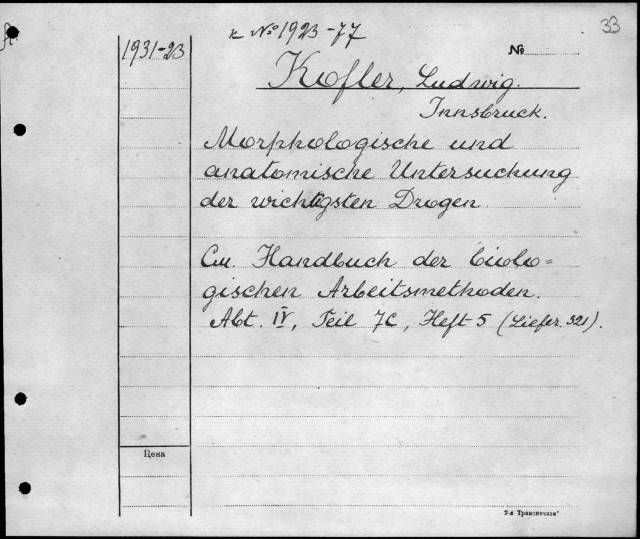 к №º 1923-77
33
1931-23
№
Kofler, Ludwig.
Innsbruck.
Morphologische und
anatomische Untersuchung
der wichtigsten Drogen.
См. Handbuch der biolo=
gischen Arbeitsmethoden.
Abt. IV, Teil 7C, Heft 5 (Liefer. 321).
Цена